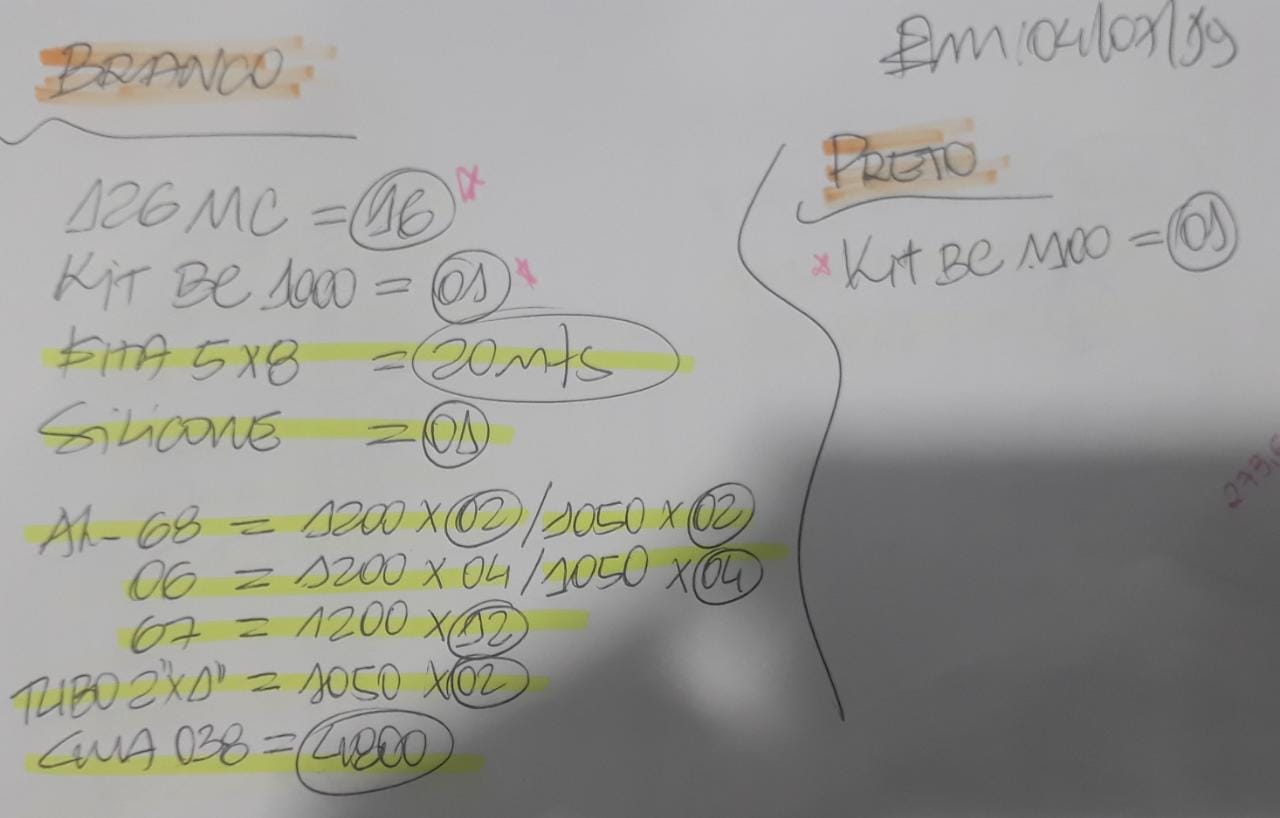 BRANCO
126 MC = 16
Kit BE 1000 = 01
FITA 5X8 = 20mts
SiLiCONE = 01
AL- 68 = 1200 X 02 / 1050 X 02
06 = 1200 X 04 / 1050 X 04
67 = 1200 X 12
TUBO 2"X1" = 1050 X 02
CMA 038 = 4800
PRETO
Kit BE 1100 = 01